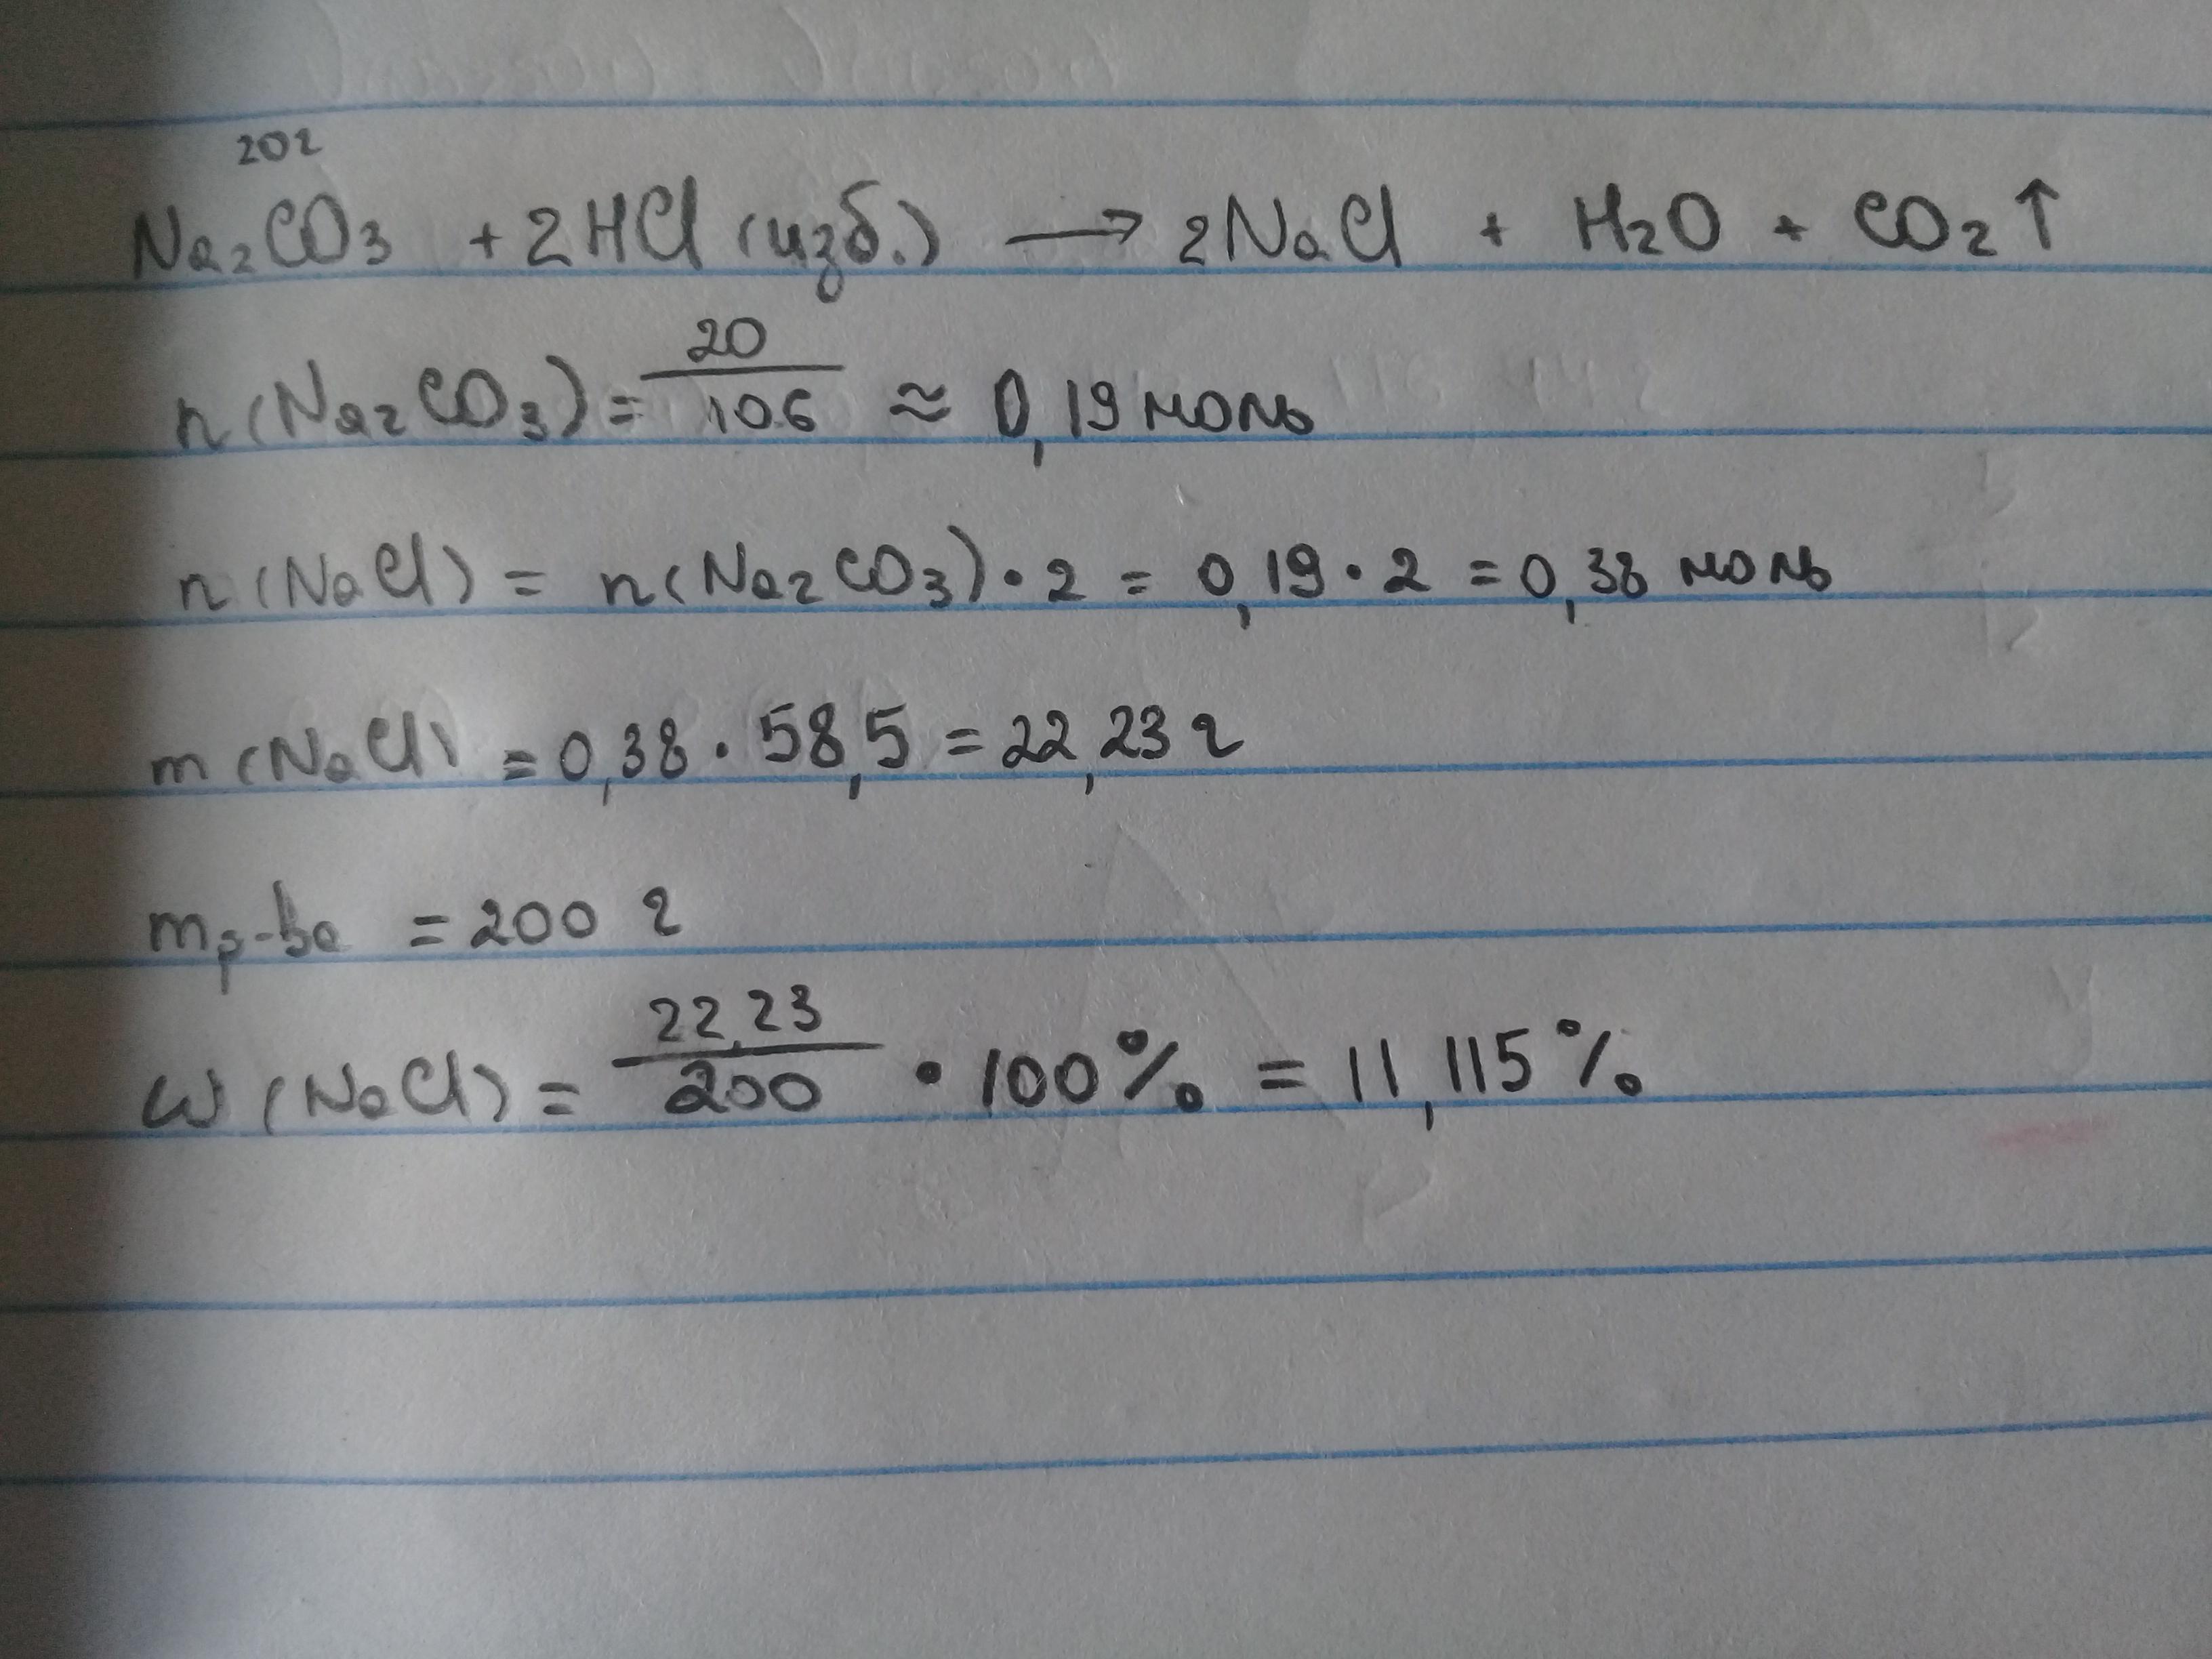 20г
Na₂CO₃ + 2HCl (изб.) → 2NaCl + H₂O + CO₂↑
n(Na₂CO₃) = 20/106 ≈ 0,19 моль
n(NaCl) = n(Na₂CO₃)·2 = 0,19·2 = 0,38 моль
m(NaCl) = 0,38·58,5 = 22,23 г
mр-ва = 200 г
ω(NaCl) = 22,23/200 · 100% = 11,115%